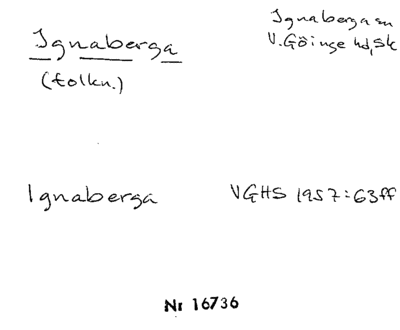 Ignaberga
(tolkn.)
Ignaberga sn
V. Göinge hd, Sk
Ignaberga
VGHS 1957:63ff
Nr 16736